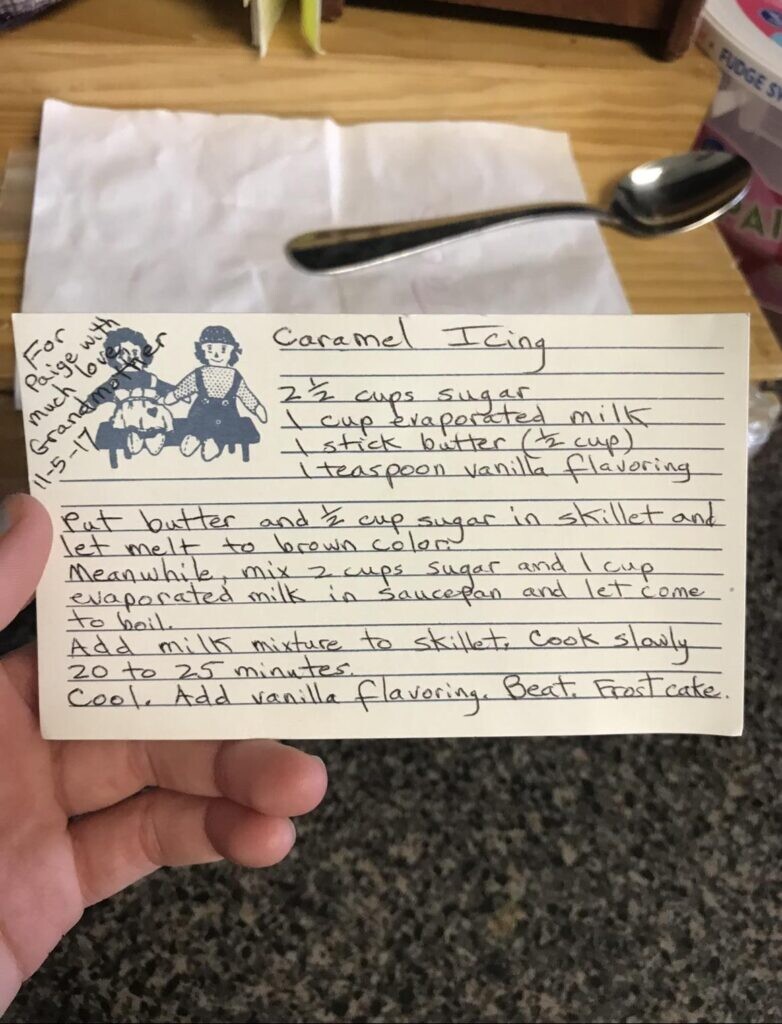 FUDGE
For
Paige with
much love,
Grandmother
11-5-17
Caramel Icing
2 ½ cups sugar
1 cup evaporated milk
1 stick butter (½ cup)
1 teaspoon vanilla flavoring
Put butter and ½ cup sugar in skillet and
let melt to brown color.
Meanwhile, mix 2 cups sugar and 1 cup
evaporated milk in saucepan and let come
to boil.
Add milk mixture to skillet. Cook slowly
20 to 25 minutes.
Cool. Add vanilla flavoring. Beat. Frost cake.